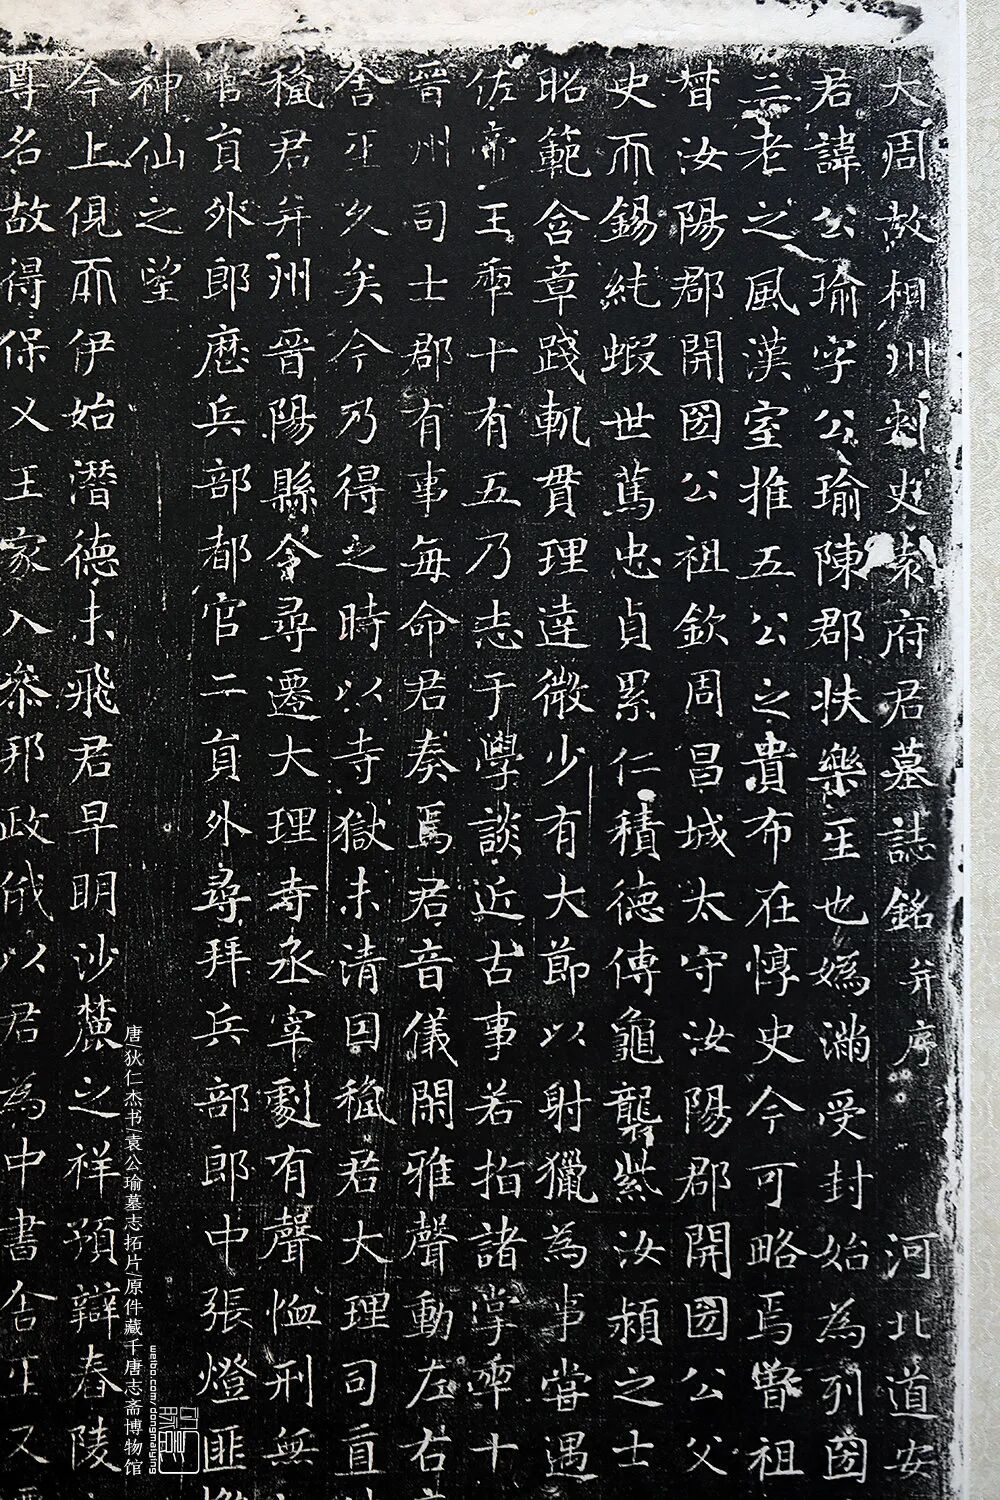 大周故相州刾史袁府君墓誌銘并序 河北道安
君諱公瑜字公瑜陳郡扶樂人也嬀滿受封始為列國
三老之風漢室推五公之貴布在惇史今可略焉曾祖
督汝陽郡開國公祖欽周昌城太守汝陽郡開國公父
史而錫純蝦世篤忠貞累仁積德傳龜襲紫汝潁之士
昭範含章踐軌貫理達微少有大節以射獵為事嘗遇
佐帝王年十有五乃志于學談近古事若指諸掌年十
晉州司士郡有事每命君奏焉君音儀閑雅聲動左右
舍人久矣今乃得之時以寺獄未清因授君大理司直
授君并州晉陽縣令尋遷大理寺丞宰劇有聲恤刑無
官員外郎歷兵部都官二員外尋拜兵部郎中張燈匪
神仙之望
今上俔而伊始潛德未飛君早明沙麓之祥預辯舂陵
尊名故得保乂王家入參邦政俄以君為中書舍人又
唐/狄仁杰书/袁公瑜墓志拓片/原件藏千唐志斋博物馆
weibo.com/dongmaiying